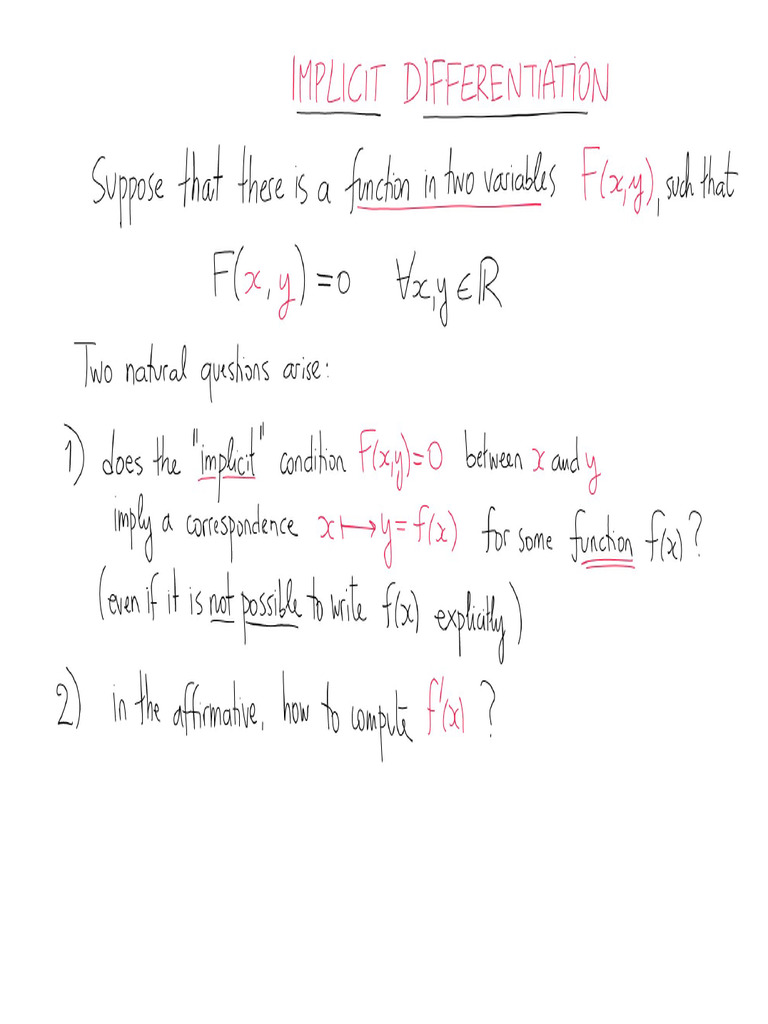 IMPLICIT DIFFERENTIATION
Suppose that there is a function in two variables F(x,y), such that
F(x,y)=0 ∀x,y∈ℝ
Two natural questions arise:
1) does the "implicit" condition F(x,y)=0 between x and y
imply a correspondence x⟼y=f(x) for some function f(x)?
(even if it is not possible to write f(x) explicitly)
2) in the affirmative, how to compute f'(x)?